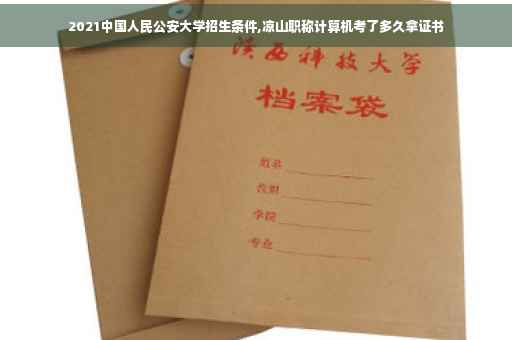 2021中国人民公安大学招生条件,凉山职称计算机考了多久拿证书
陕西科技大学
档案袋
姓名
学院
专业